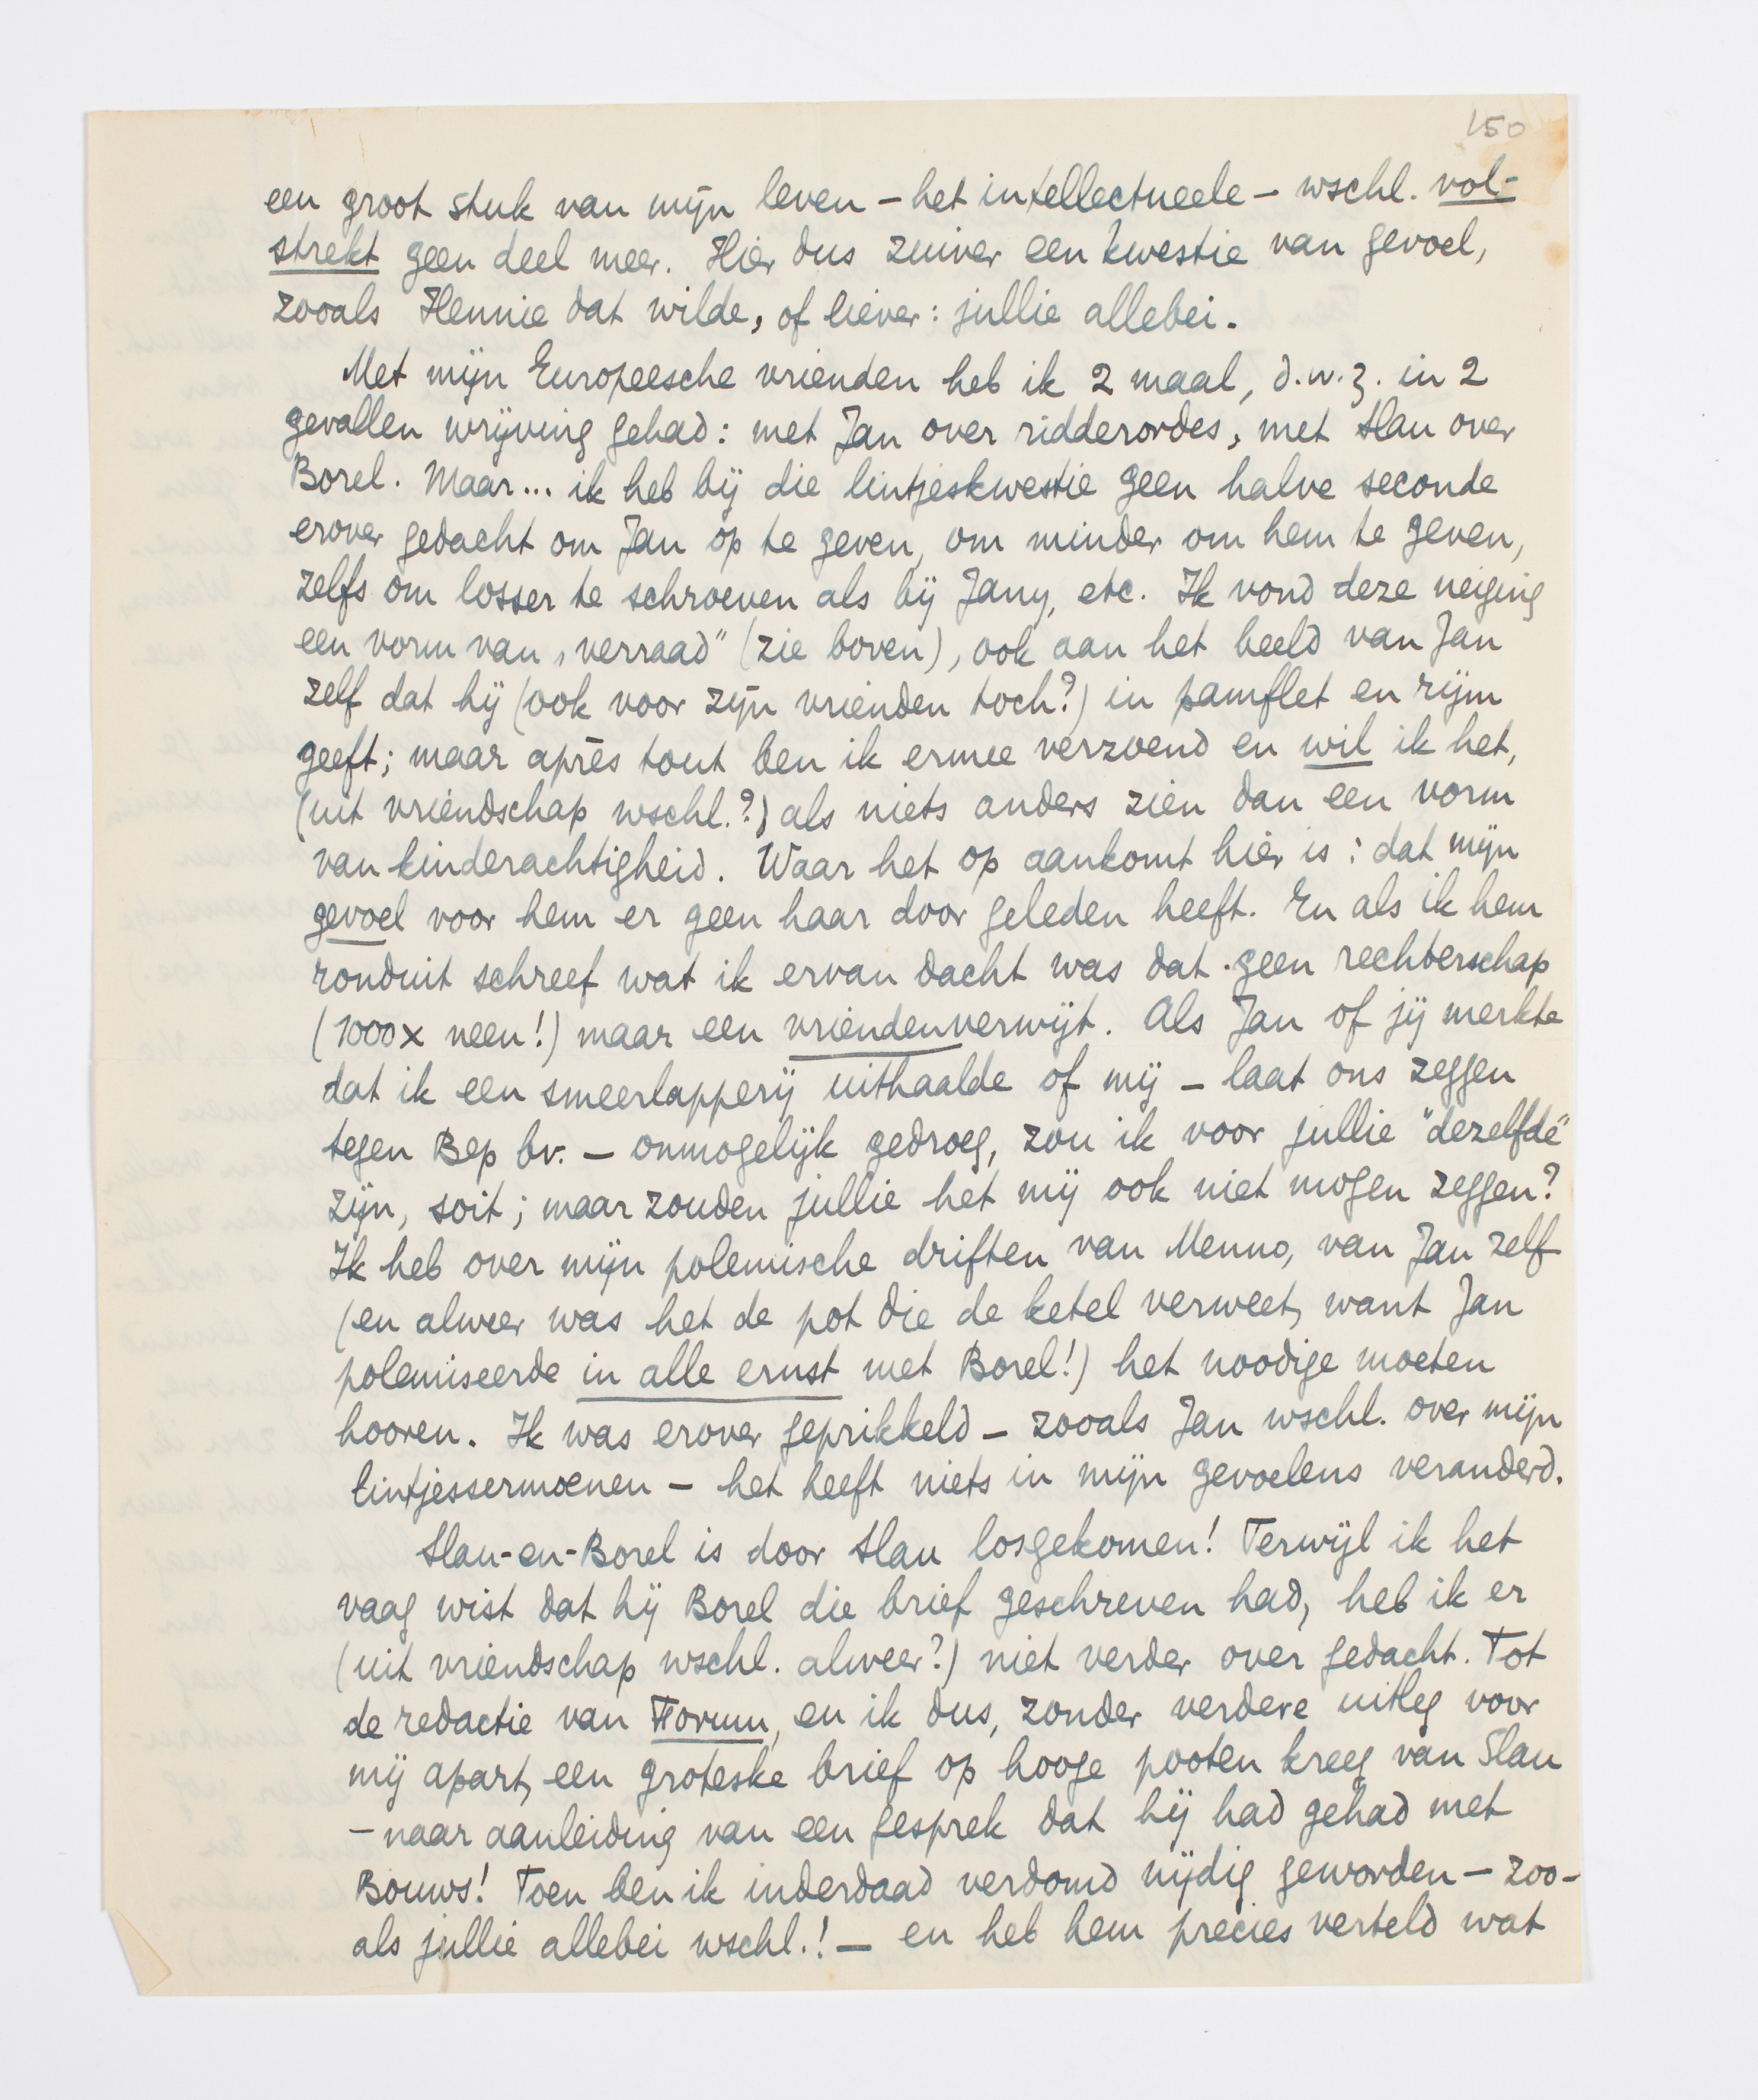 150
een groot stuk van mijn leven – het intellectueele – wschl. vol-
strekt geen deel meer. Hier dus zuiver een kwestie van gevoel,
zooals Hennie dat wilde, of liever: jullie allebei.
Met mijn Europeesche vrienden heb ik 2 maal, d.w.z. in 2
gevallen wrijving gehad: met Jan over ridderordes, met Slau over
Borel. Maar... ik heb bij die lintjeskwestie geen halve seconde
erover gedacht om Jan op te geven, om minder om hem te geven,
zelfs om losser te schroeven als bij Jany, etc. Ik vond deze neiging
een vorm van „verraad" (zie boven), ook aan het beeld van Jan
zelf dat hij (ook voor zijn vrienden toch?) in pamflet en rijm
geeft; maar après tout ben ik ermee verzoend en wil ik het,
(uit vriendschap wschl.?) als niets anders zien dan een vorm
van kinderachtigheid. Waar het op aankomt hier is: dat mijn
gevoel voor hem er geen haar door geleden heeft. En als ik hem
ronduit schreef wat ik ervan dacht was dat geen rechterschap
(1000x neen!) maar een vriendenverwijt. Als Jan of jij merkte
dat ik een smeerlapperij uithaalde of mij – laat ons zeggen
tegen Bep bv. – onmogelijk gedroeg, zou ik voor jullie "dezelfde"
zijn, soit; maar zouden jullie het mij ook niet mogen zeggen?
Ik heb over mijn polemische driften van Menno, van Jan zelf
(en alweer was het de pot die de ketel verweet, want Jan
polemiseerde in alle ernst met Borel!) het noodige moeten
hooren. Ik was erover geprikkeld – zooals Jan wschl. over mijn
lintjessermoenen – het heeft niets in mijn gevoelens veranderd.
Slau-en-Borel is door Slau losgekomen! Terwijl ik het
vaag wist dat hij Borel die brief geschreven had, heb ik er
(uit vriendschap wschl. alweer?) niet verder over gedacht. Tot
de redactie van Forum, en ik dus, zonder verdere uitleg voor
mij apart, een groteske brief op hooge pooten kreeg van Slau
– naar aanleiding van een gesprek dat hij had gehad met
Bouws! Toen ben ik inderdaad verdomd nijdig geworden – zoo-
als jullie allebei wschl.! – en heb hem precies verteld wat